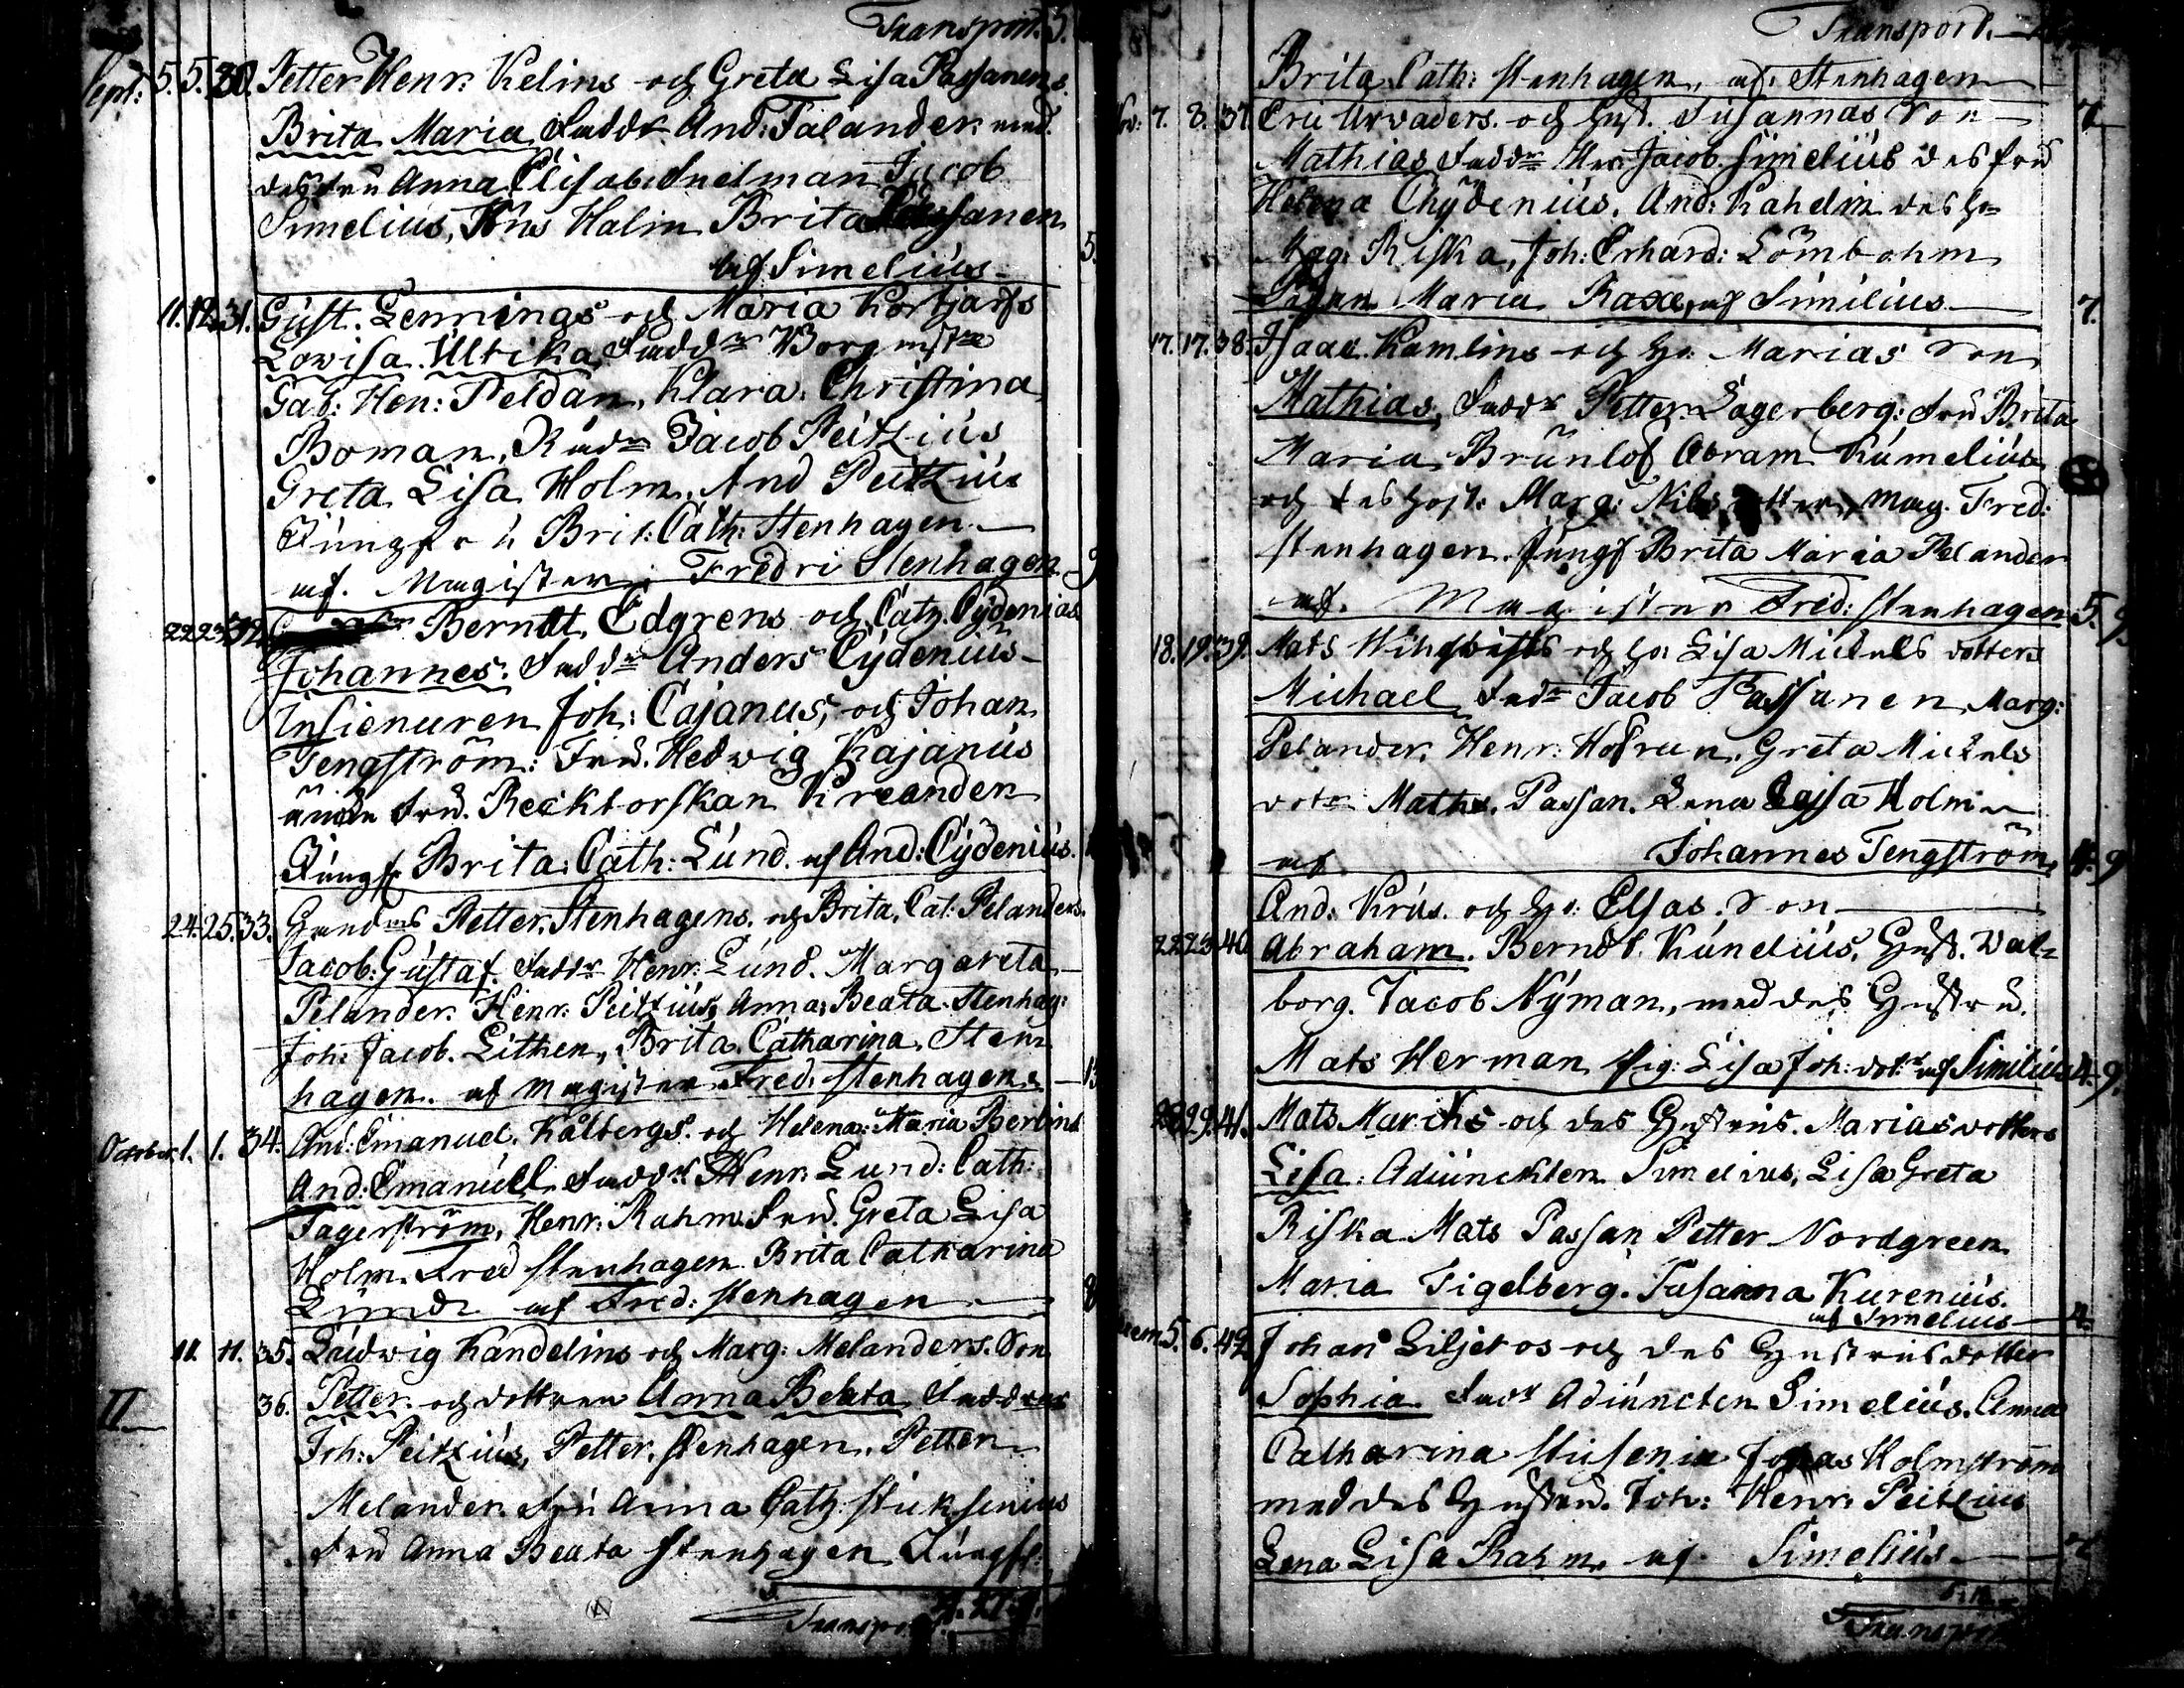 Transport. 5.
Sept: 5. 5. 30. Petter Henr: Kelins och Greta Lisa Passanens
Brita Maria Faddr And: Falander med
des fru Anna Elisab: Snelman Jacob
Simelius, Höns Halin Brita Passanen
af Simelius 5.
11. 12. 31. Gust. Lennings och Maria Kortjärfs
Lovisa Ulrika Faddr Borgmstr
Gab: Hen: Peldan, Klara Christina
Boman, Rådm Jacob Peitzius
Greta Lisa Holm, And Peitzius
Jungfru Brit: Cath: Stenhagen
af. Magister Fredri Stenhagen 9
22. 23. 32. Berndt Edgrens och Catz. Cydenias
Johannes. Faddr Anders Cydenius
Insienuren Joh: Cajanus, och Johan
Tengström: Fru. Hedwig Kajanus
änka Fru. Recktorskan Kreander
Jungf Brita: Cath: Lund. af And: Cydenius.
24. 25. 33. Petter Stenhagens och Brita Cat: Pelanders.
Jacob: Gustaf. Faddr Henr: Lund. Margareta
Pelander. Henr: Peitzius Anna Beata Stenhag:
Joh: Jacob. Lithen, Brita Catharina Sten
hagen. af magister Fred: Stenhagen 13
October 1. 1. 34. And: Emanuel Kålbergs. och Helena Maria Berlins
And: Emanuel Faddr Henr: Lund: Cath:
Fagerström, Henr: Rahm Fru. Greta Lisa
Holm. Fred Stenhagen Brita Catharina
Lund af Fred: Stenhagen 8
11. 11. 35. Ludwig Kandelins och Marg: Melanders. Son
II 36. Petter och dottren Anna Beata Faddrar
Joh: Peitzius, Petter Stenhagen. Petter
Melander. Fru Anna Catz: Stuksenius
Fru Anna Beata Stenhagen Jungf:
Transport
Transport.
Brita Cath: Stenhagen, af. Stenhagen
Nov: 7. 8. 37. Eric Arvaders. och Hust. Susannas Son 7
Mathias Faddr Her Jacob Simelius des fru
Helena Chydenius. And: Kahelin des Hu
Mag: Riska, Joh: Erhard: Lömbohm
Pigan Maria Raxe, af Simelius 7.
17. 17. 38. Isaac Kamlins och Hu: Marias Son
Mathias, Faddr Petter Lagerberg: Fru Brita
Maria Brunlöf Abram Kumelius
och des Host: Marg: Nils dotter, Mag. Fred:
Stenhagen. Jungf Brita Maria Pelander
af. Magister Fred: Stenhagen 5. 9.
18. 19. 39. Mats och Hu: Lisa Mickels dotters
Michael Fadr Jacob Passanen, Marg:
Pelander. Henr: Greta Mickels
dotr Maths. Passan. Lena Cajsa Holm
af Johannes Tengström 4. 9
And: Krus. och Hu: Elsas. Son
22. 23. 40. Abraham. Berndt Kunelius, Hust. Wal=
borg. Jacob Nyman, med des Hustru.
Mats Herman Pig: Lisa Joh: dotr af Simelius 4. 9.
28. 29. 41. Mats Marcks och des Hustrus. Marias dotters
Lisa: Adiunckten Simelius, Lisa Greta
Riska Mats Passan Petter Nordgreen
Maria Tigelberg. Susanna Kurenius.
af Simelius
Decem 5. 6. 42. Johan Liljeros och des Hustrus dotter
Sophia Fadr Adiuncten Simelius. Anna
Catharina Stusenia Jonas Holmström
med des Hustru. Joh: Henr: Peitzius
Lena Lisa Rahm. af Simelius
Transport